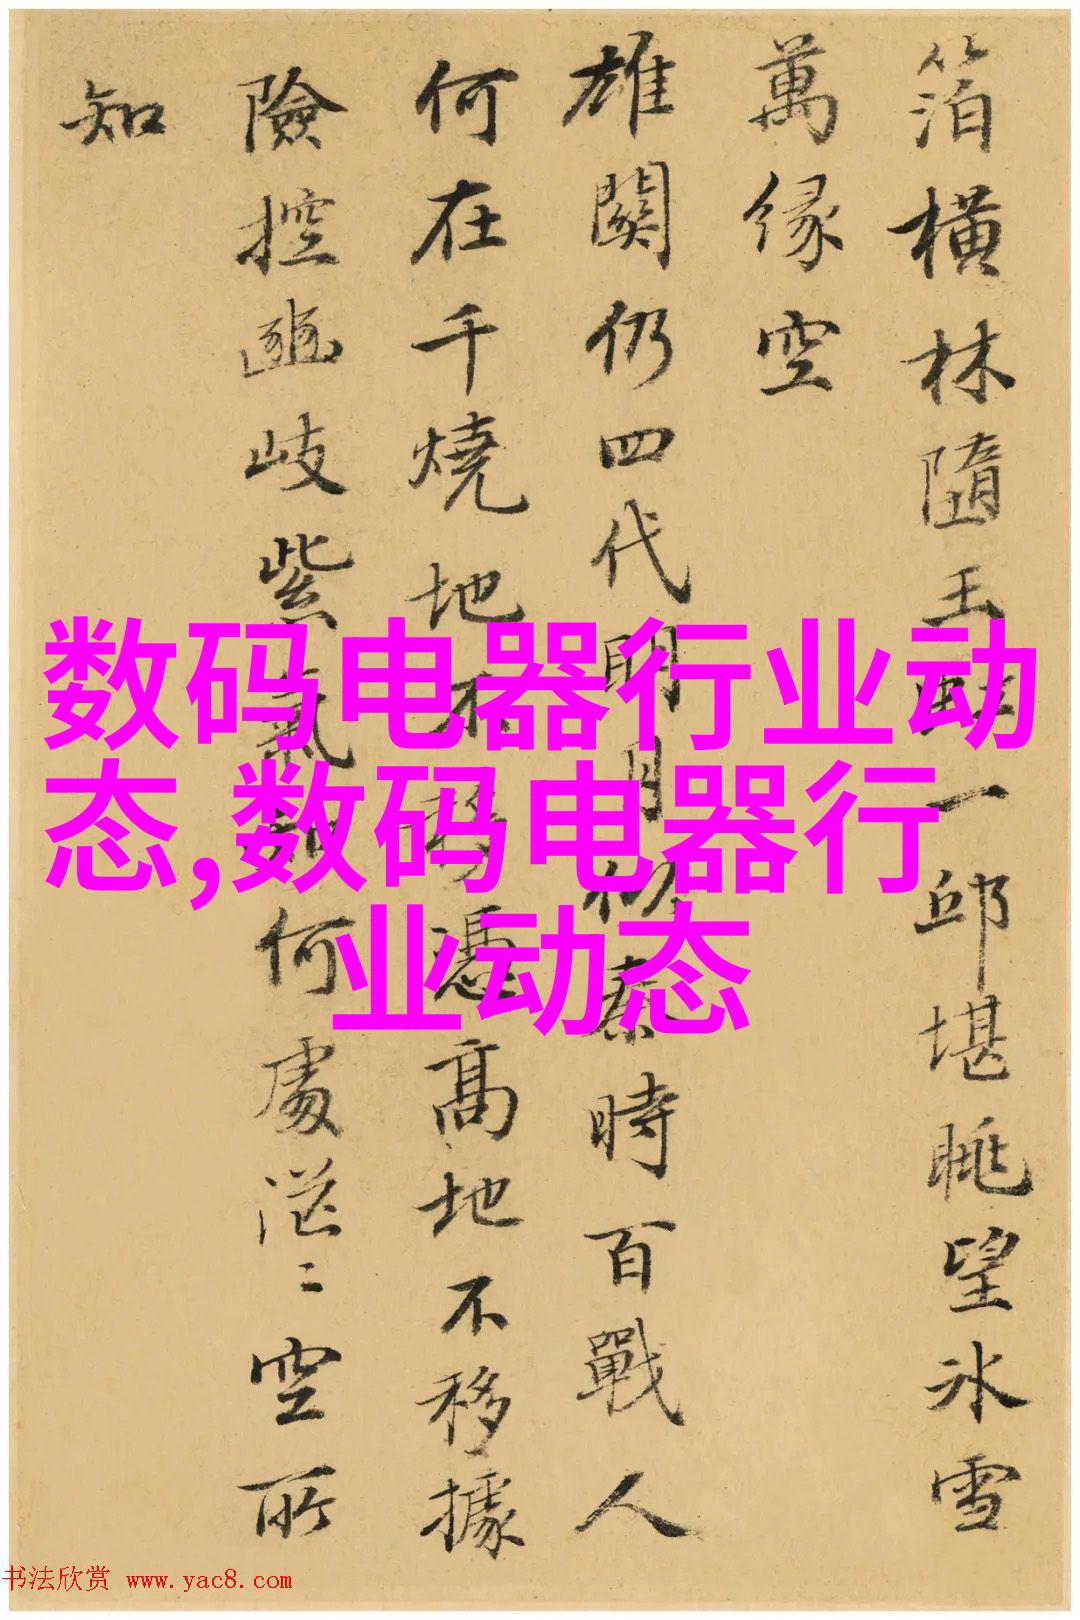 箔橫林隨玉一邱堪眺望冰雪
萬緣空
雄關仍四代明月秦時百戰人
何在千燒地不移憑高地不移據
險控豳岐紫氣何處茫〻空所
知
数码电器行业动
态,数码电器行
业动态
书法欣赏 www.yac8.com